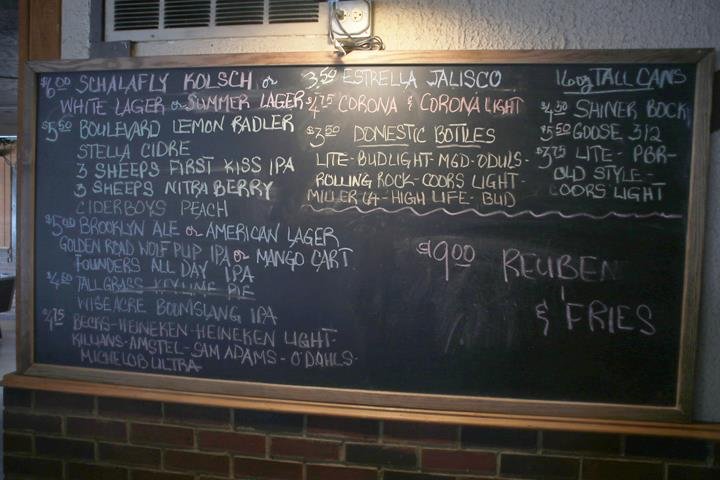 $6.00 SCHALAFLY KOLSCH or
WHITE LAGER or SUMMER LAGER
$5.50 BOULEVARD LEMON RADLER
STELLA CIDRE
3 SHEEPS FIRST KISS IPA
3 SHEEPS NITRA BERRY
CIDERBOYS PEACH
$5.00 BROOKLYN ALE or AMERICAN LAGER
GOLDEN ROAD WOLF PUP IPA or MANGO CART
FOUNDERS ALL DAY IPA
$4.50 TALLGRASS KEY LIME PIE
WISEACRE BOOMSLANG IPA
$4.75 BECKS-HEINEKEN-HEINEKEN LIGHT-
KILLIANS-AMSTEL-SAM ADAMS-O'DAHLS-
MICHELOB ULTRA-
3.50 ESTRELLA JALISCO
$4.75 CORONA & CORONA LIGHT
$3.50 DOMESTIC BOTTLES
LITE-BUDLIGHT-MGD-ODULS-
ROLLING ROCK-COORS LIGHT-
MILLER 64-HIGH LIFE-BUD
16oz TALL CANS
$4.50 SHINER BOCK
$5.50 GOOSE 312
$3.75 LITE-PBR-
OLD STYLE-
COORS LIGHT
$9.00 REUBEN
& FRIES